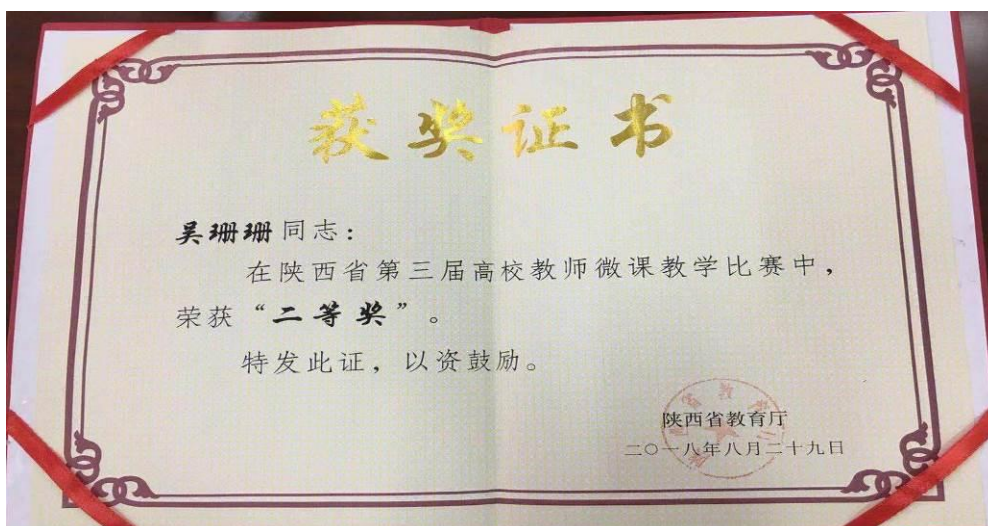 获奖证书
吴珊珊同志：
在陕西省第三届高校教师微课教学比赛中，
荣获“二等奖”。
特发此证，以资鼓励。
陕西省教育厅
二〇一八年八月二十九日